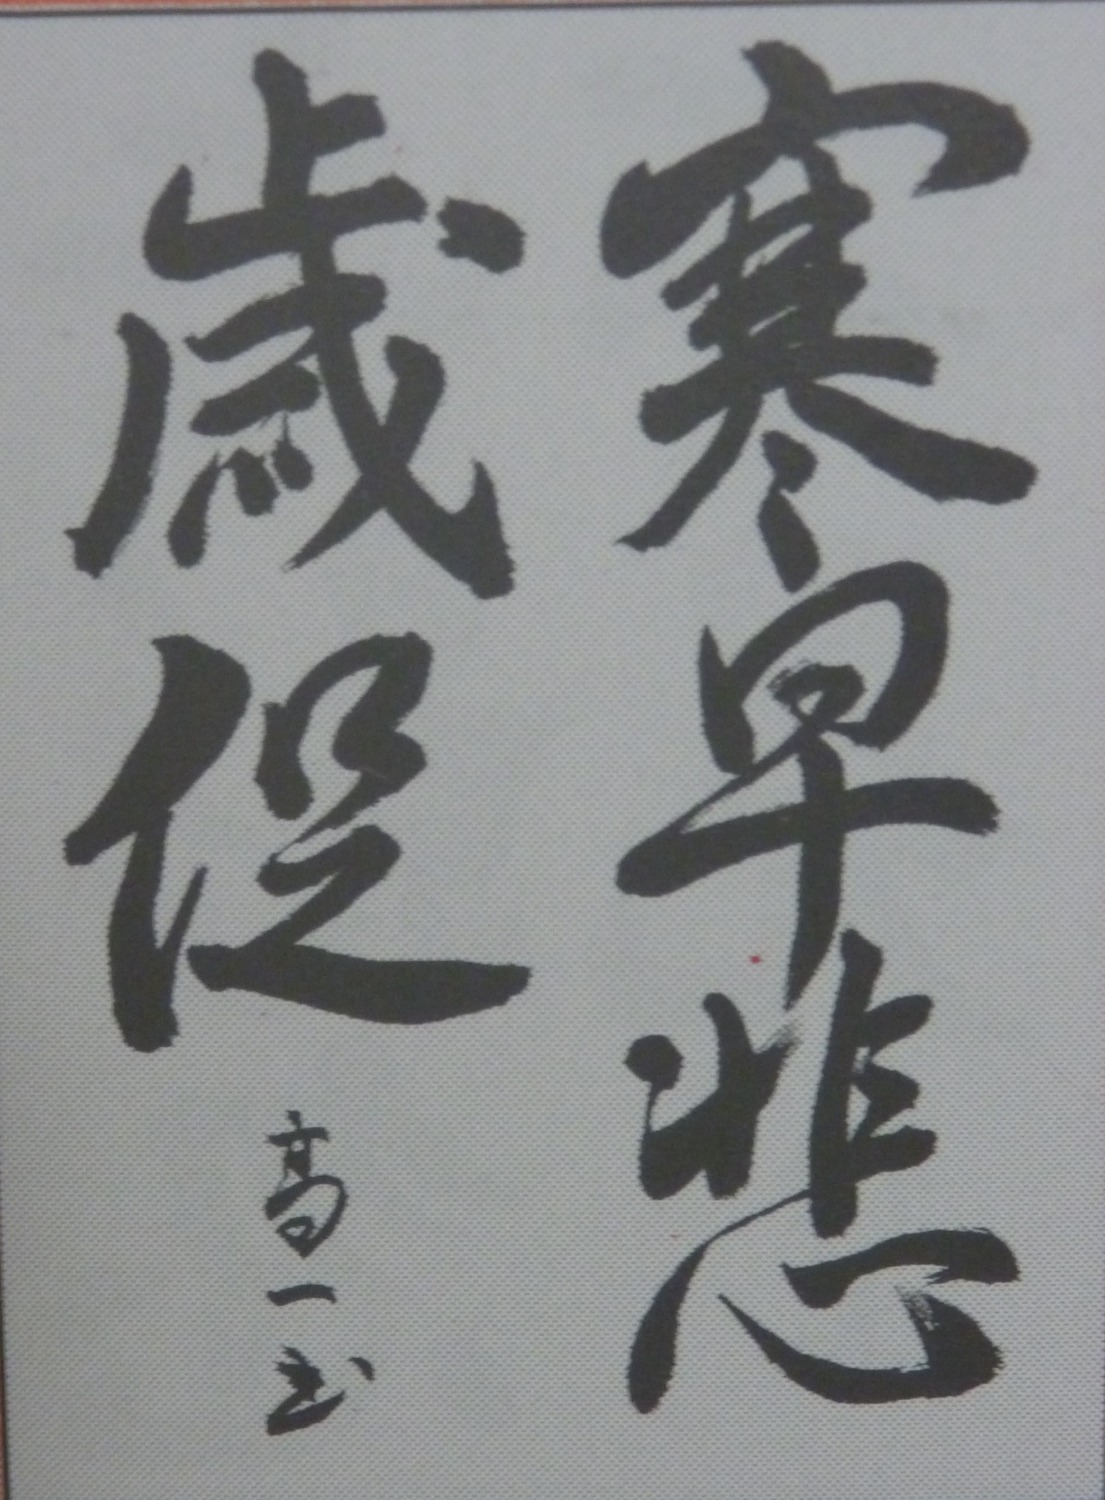 寒早悲
歳促
高一